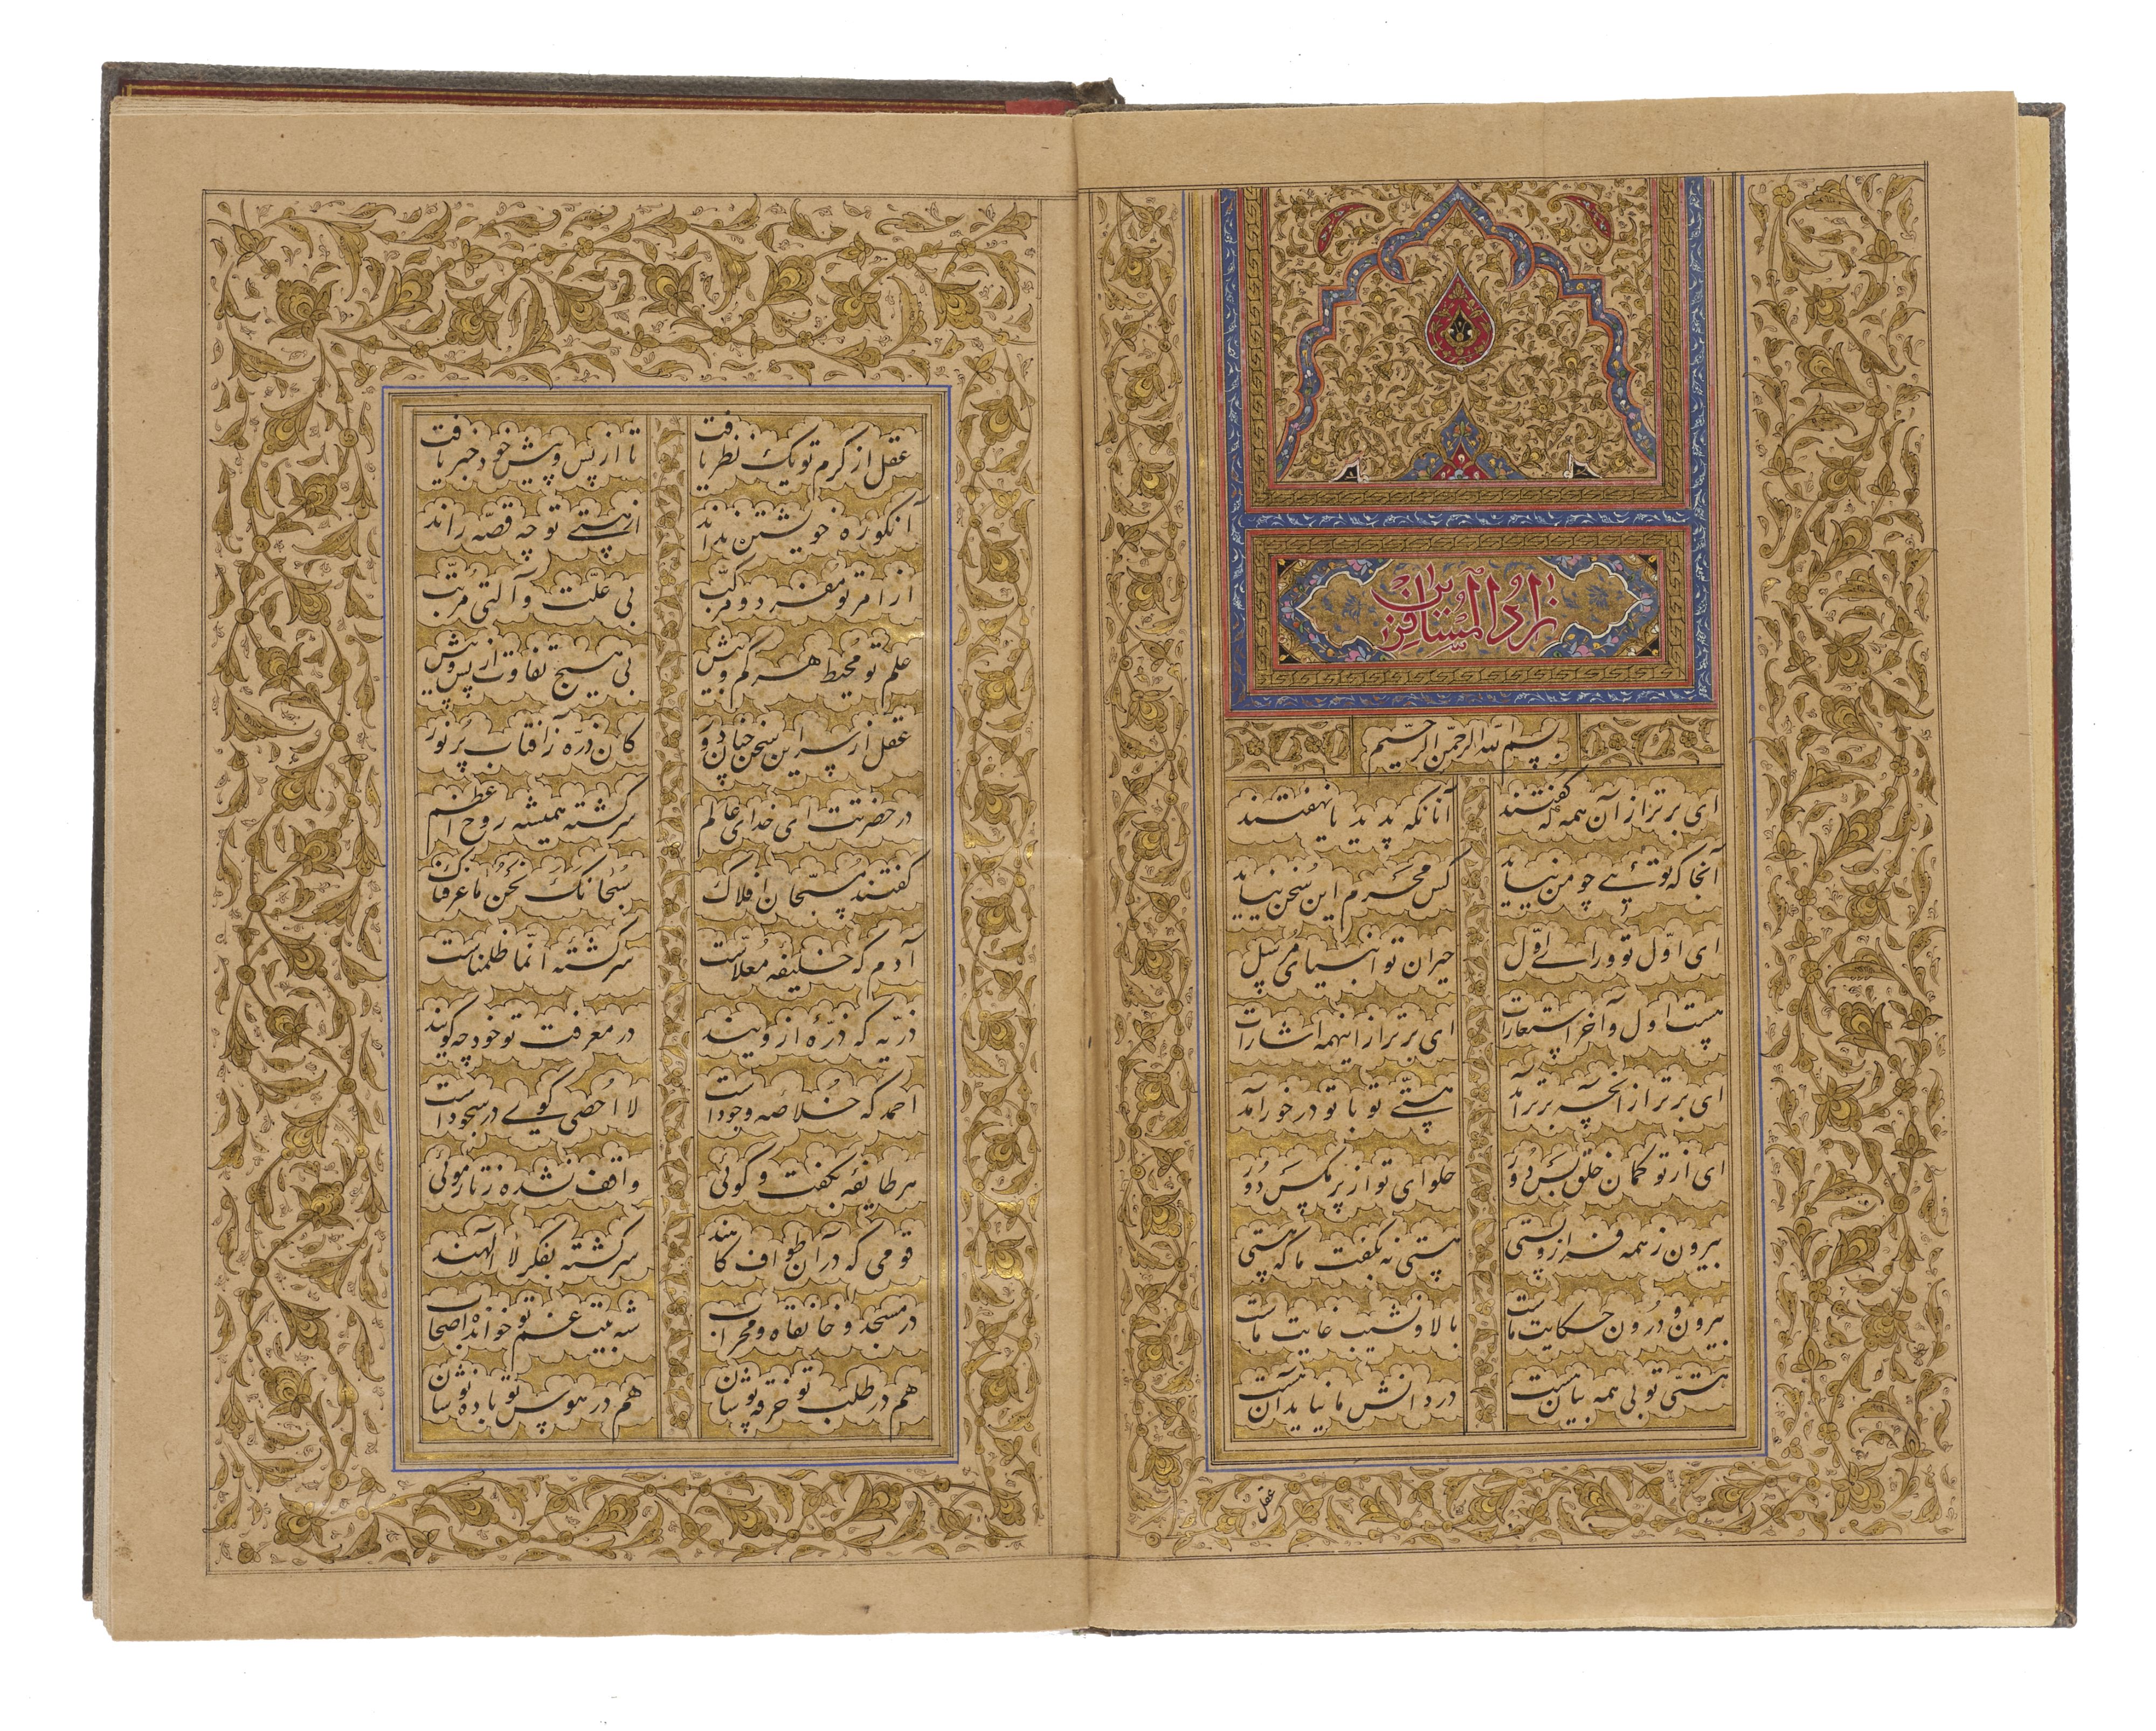 زاد المسافرین
بسم الله الرحمن الرحیم
ای برتر از آن همه که گفتند آنانکه پدید یا نهفتند
آنجا که توئی چو من نیاید کس محرم این سخن نیاید
ای اوّل تو ورای اوّل حیران تو انبیای مُرسل
هست اول و آخر استعارات ای برتر از اینهمه اشارات
ای برتر از انچه برتر آمد هستیّ تو با تو در خور آمد
ای از تو گمان خلق بس دُور حلوای تو از پر مگس دُور
بیرون ز همه فراز و پستی هستی نه بگفت ما که هستی
بیرون و درُون حکایت ماست بالا و نشیب غایت ماست
هستیّ تو بی همه بیان هست در دانش ما نیاید آن هست
عقل
عقل از کرم تو یک نظر یافت تا از پس و پیش خود خبر یافت
آنکو ره خویشتن نداند از هستی تو چه قصّه راند
از امر تو مُفرد و مرکّب بی علّت و آلتی مُرتّب
علم تو محُیط هر کم و بیش بی هیچ تفاوت از پس و پیش
عقل از سر این سخن چنان دور کان ذرّه ز آفتاب پُر نور
در حضرتت ای خدای عالم سرگشته همیشه روح اعظم
گفتند مسبّحان افلاک سُبحانک نحنُ ما عرفناک
آدم که خلیفه مُعلّاست سرگشتهٔ انّما ظلمناست
ذرّیه که ذرّهٔ از ویند در معرفت تو خود چه گویند
احمد که خُلاصه وجود است لا اُحصی گوی در سجود است
هر طایفهٔ بگفت و گوئی واقف نشده ز تار موئی
قومی که در آن طواف گاهند سرگشته بفکر لا الهند
در مسجد و خانقاه و محراب شه بیت غم تو خوانده اصحاب
هم در طلب تو خرقه پوشان هم در هوس تو باده نوشان